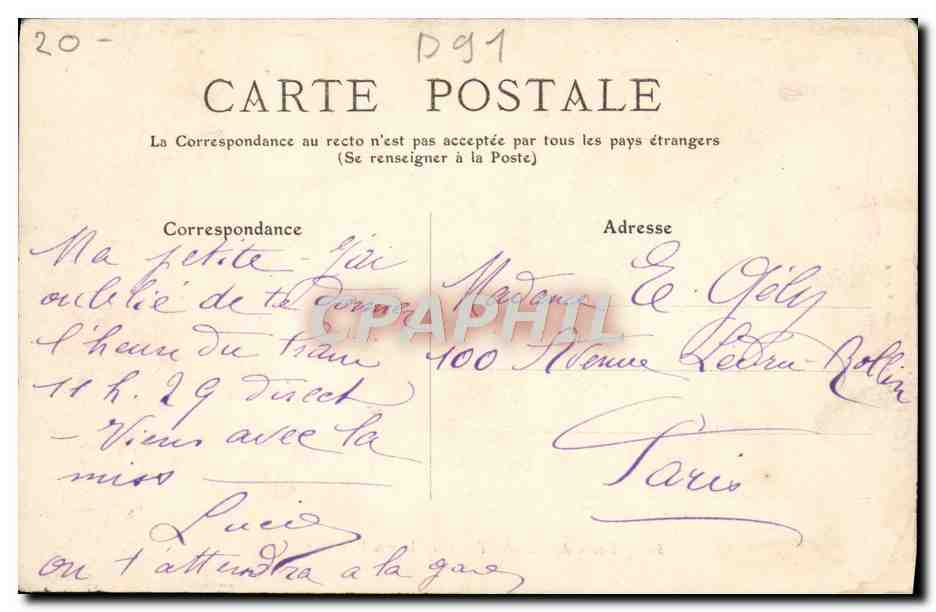 20-
D91
CARTE POSTALE
La Correspondance au recto n'est pas acceptée par tous les pays étrangers
(Se renseigner à la Poste)
Correspondance
Ma petite - J'ai
oublié de te donner
l'heure du train
11 h. 29 direct
- Viens avec la
miss
Lucie
on t'attendra a la gare
Adresse
Madame E. Gély
100 Avenue Ledru-Rollin
Paris
CPAPHIL